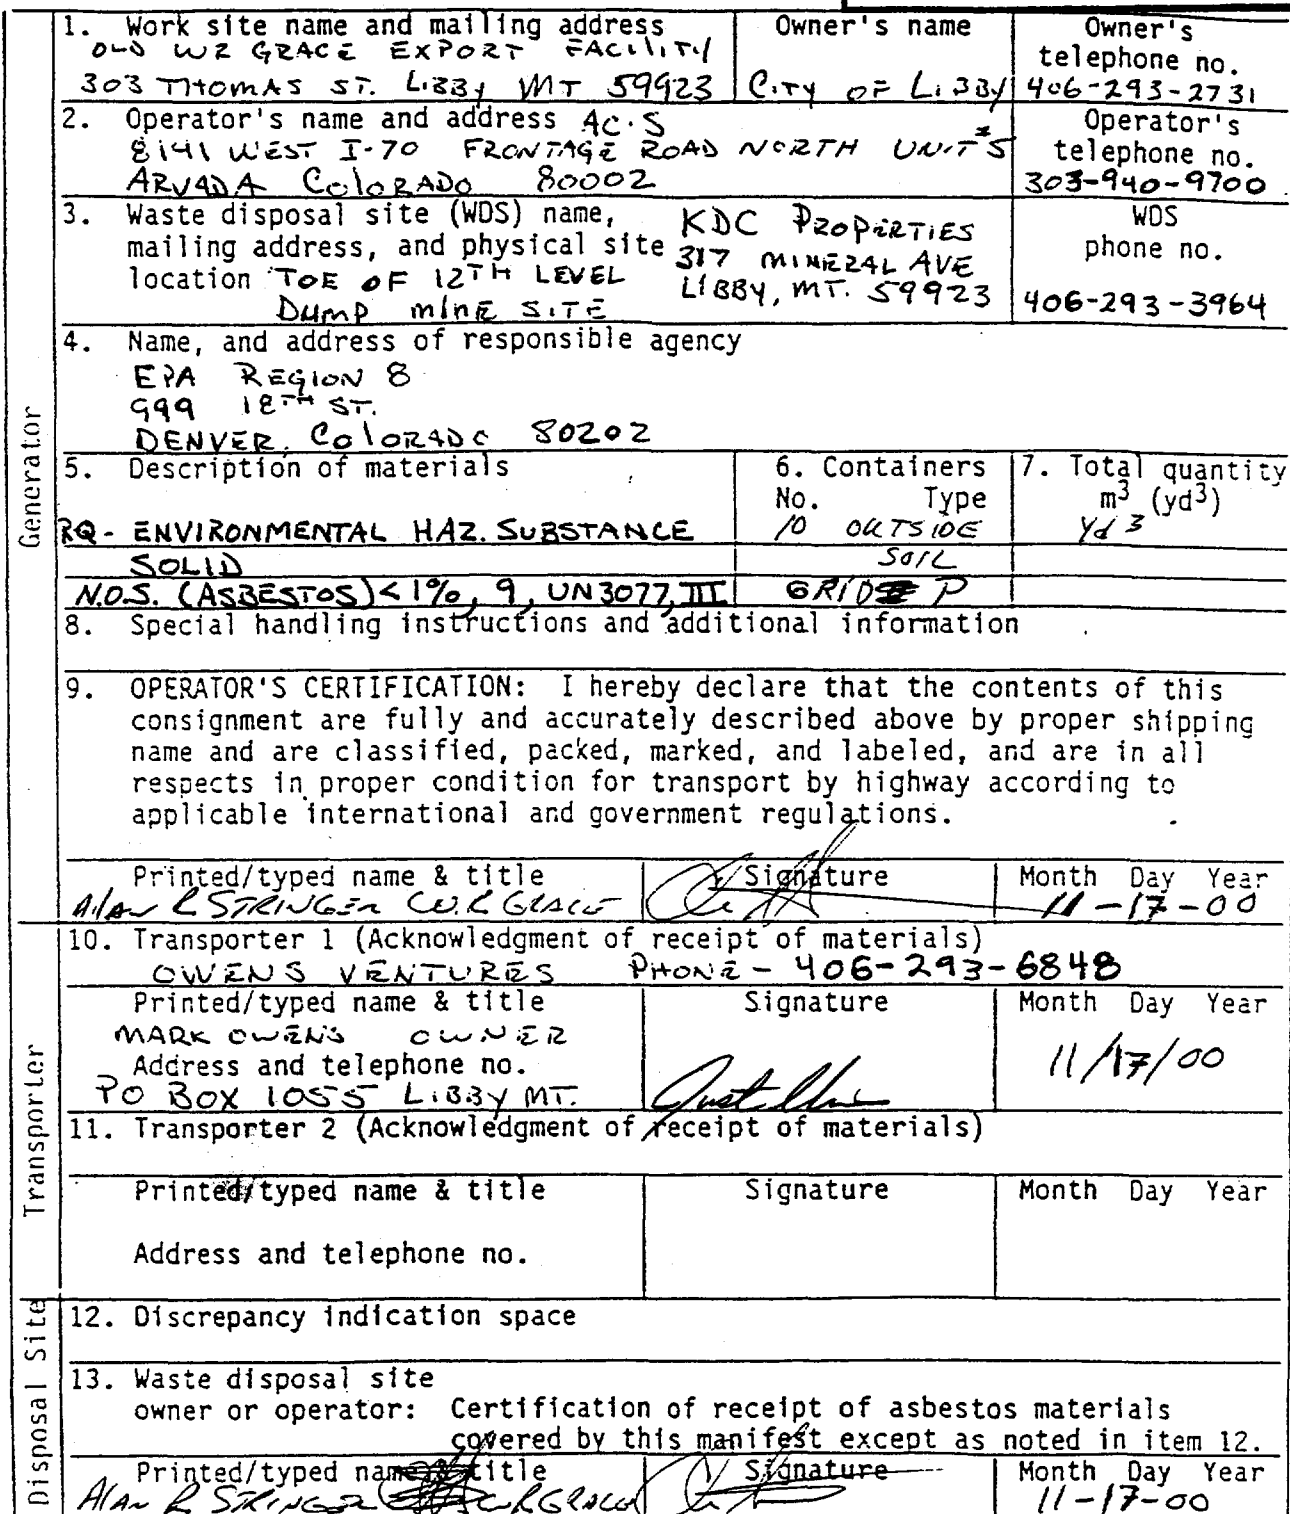 1. Work site name and mailing address
OLD WR GRACE EXPORT FACILITY
303 THOMAS ST. LIBBY MT 59923
Owner's name
CITY OF LIBBY
Owner's
telephone no.
406-293-2731
2. Operator's name and address AC.S
8141 WEST I-70 FRONTAGE ROAD NORTH UNIT #5
ARVADA COLORADO 80002
Operator's
telephone no.
303-940-9700
3. Waste disposal site (WDS) name,
mailing address, and physical site
location TOE OF 12TH LEVEL
DUMP MINE SITE
KDC PROPERTIES
317 MINERAL AVE
LIBBY, MT. 59923
WDS
phone no.
406-293-3964
Generator
4. Name, and address of responsible agency
EPA REGION 8
999 18TH ST.
DENVER, COLORADO 80202
5. Description of materials
6. Containers
No. Type
7. Total quantity
m3 (yd3)
RQ - ENVIRONMENTAL HAZ. SUBSTANCE
10 OUTSIDE
Yd 3
SOLID
SOIL
N.O.S. (ASBESTOS) < 1%, 9, UN3077, III
GRID P
8. Special handling instructions and additional information
9. OPERATOR'S CERTIFICATION: I hereby declare that the contents of this
consignment are fully and accurately described above by proper shipping
name and are classified, packed, marked, and labeled, and are in all
respects in proper condition for transport by highway according to
applicable international and government regulations.
Printed/typed name & title
Alan R STRINGER W.R GRACE
Signature
Month Day Year
11-17-00
Transporter
10. Transporter 1 (Acknowledgment of receipt of materials)
OWENS VENTURES PHONE - 406-293-6848
Printed/typed name & title
MARK OWENS OWNER
Address and telephone no.
PO BOX 1055 LIBBY MT.
Signature
Month Day Year
11/17/00
11. Transporter 2 (Acknowledgment of receipt of materials)
Printed/typed name & title
Signature
Month Day Year
Address and telephone no.
Disposal Site
12. Discrepancy indication space
13. Waste disposal site
owner or operator: Certification of receipt of asbestos materials
covered by this manifest except as noted in item 12.
Printed/typed name & title
Alan R STRINGER W R GRACE
Signature
Month Day Year
11-17-00